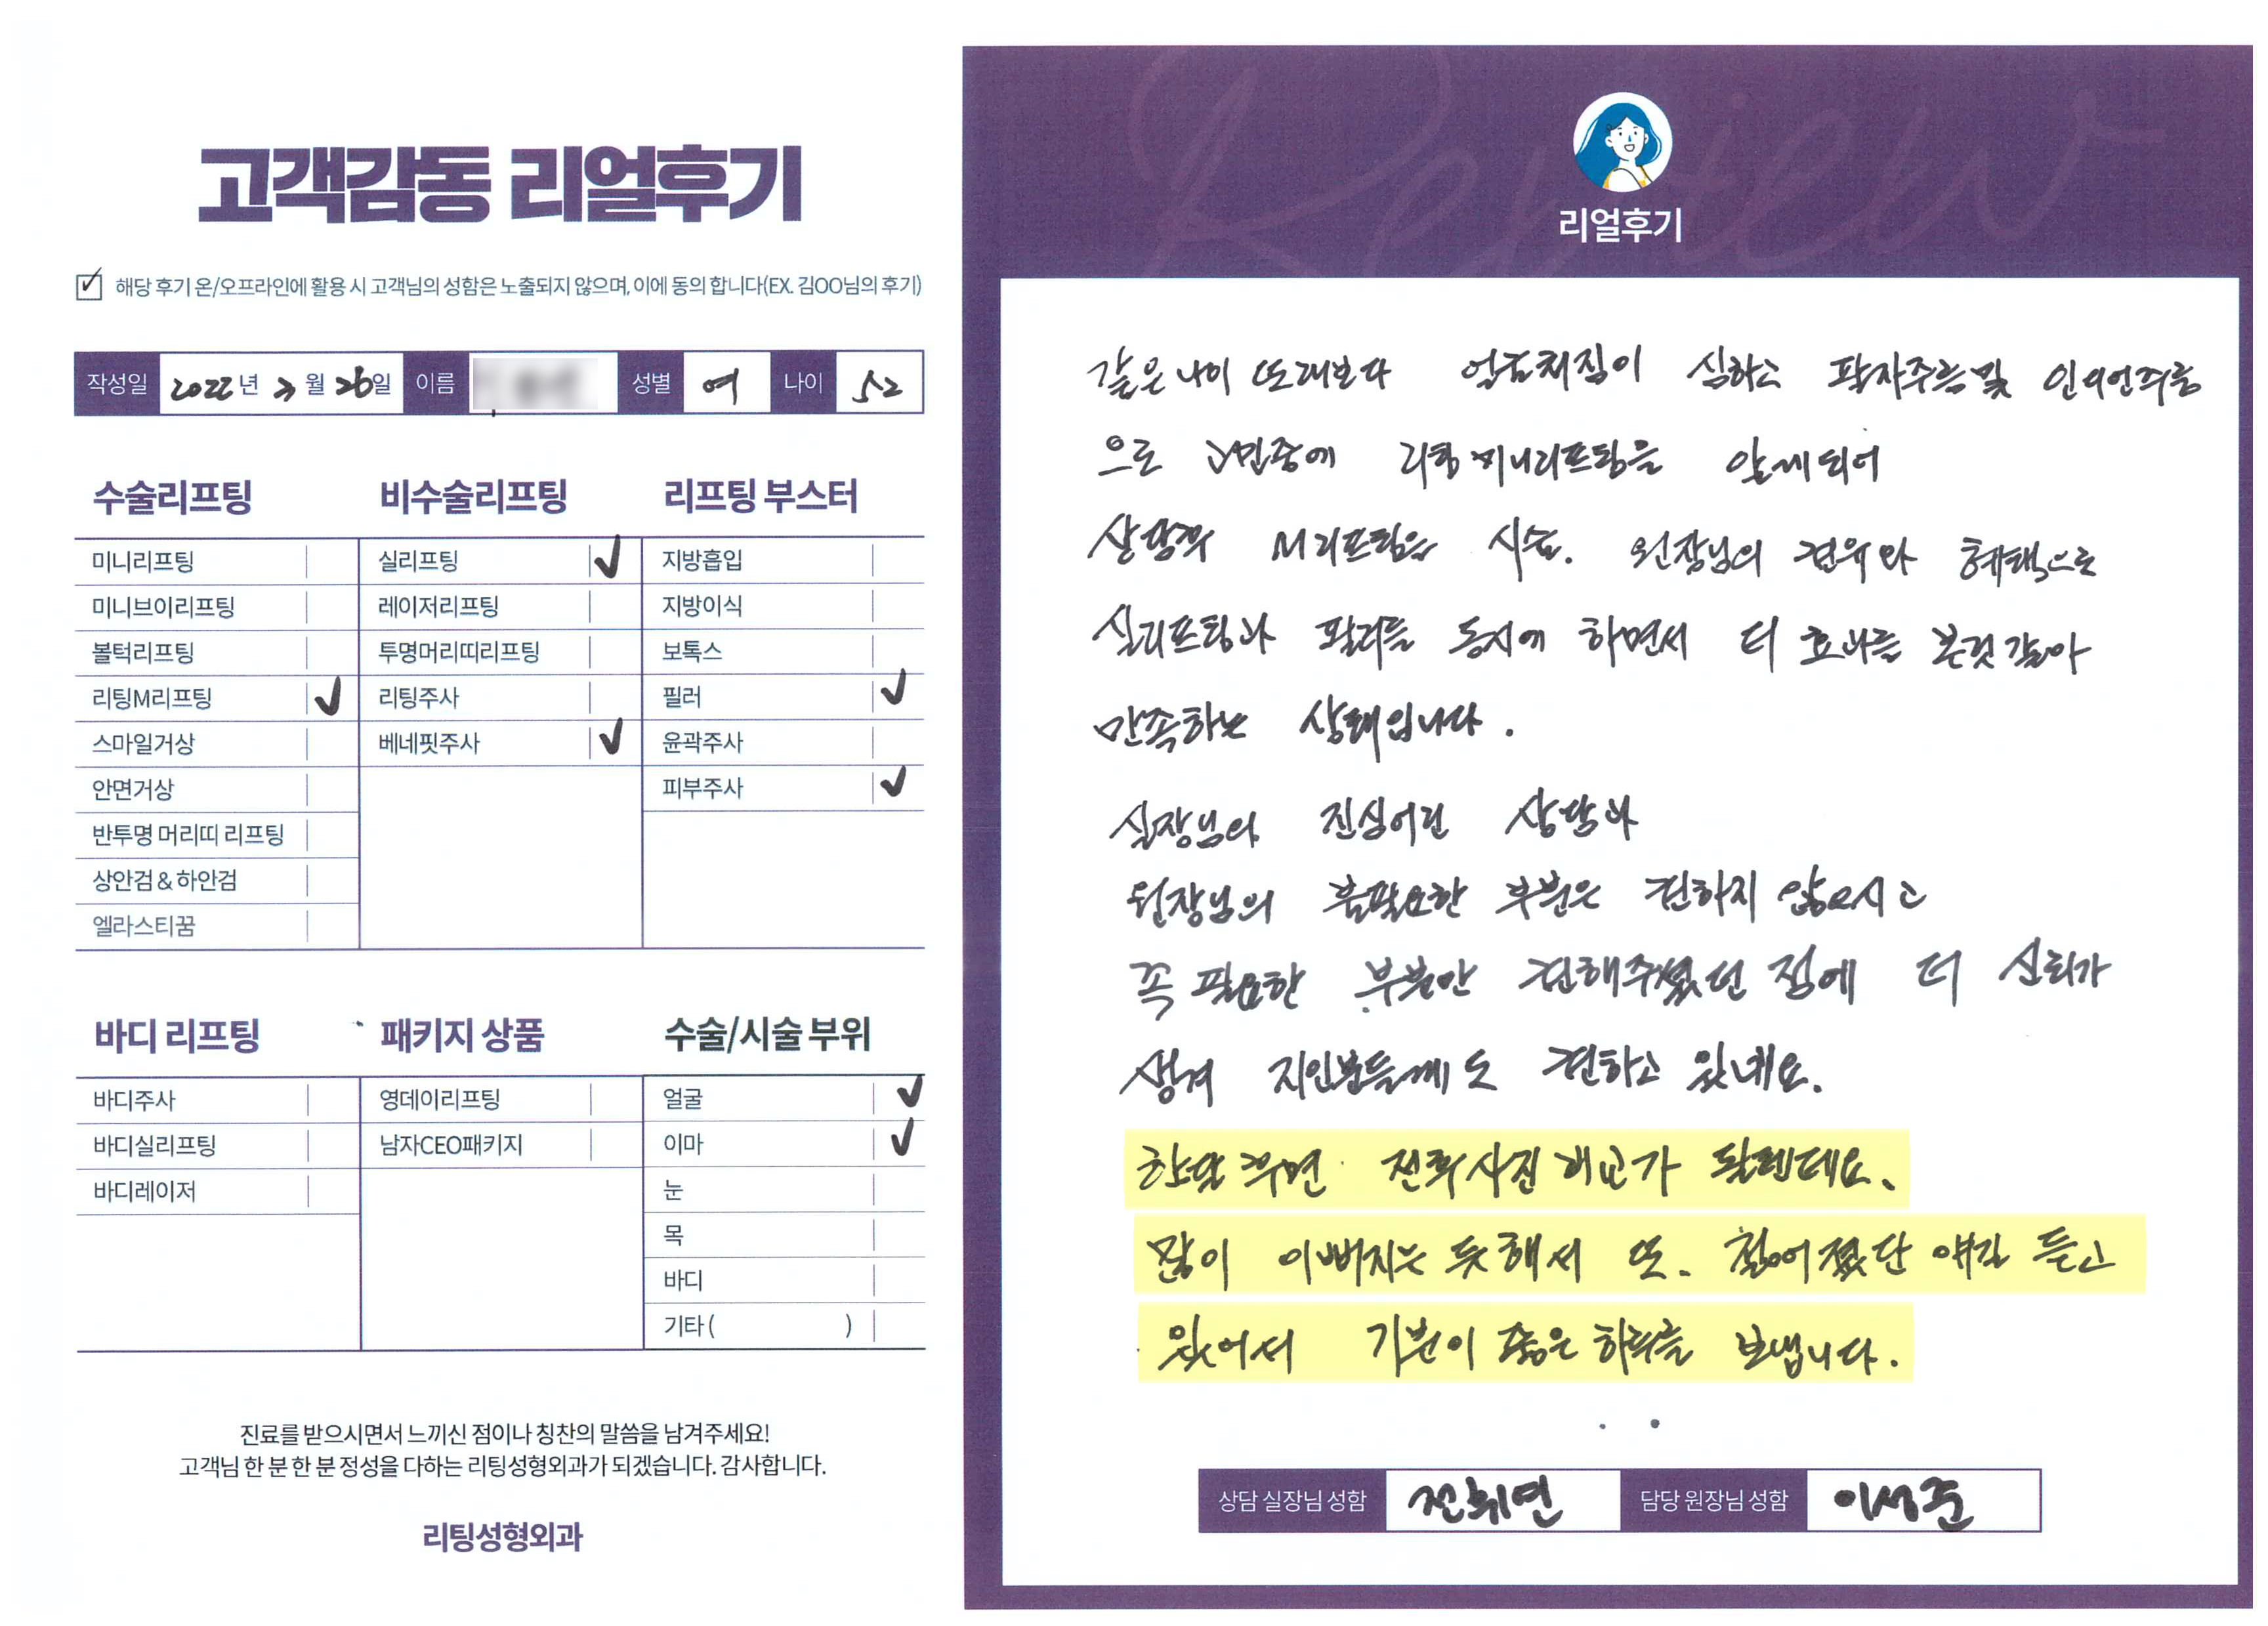 고객감동 리얼후기
해당 후기 온/오프라인에 활용 시 고객님의 성함은 노출되지 않으며, 이에 동의 합니다(EX. 김OO님의 후기)
작성일 2022년 3월 26일 이름 성별 여 나이 52
수술리프팅
미니리프팅
미니브이리프팅
볼턱리프팅
리팅M리프팅
스마일거상
안면거상
반투명 머리띠 리프팅
상안검 & 하안검
엘라스티꿈
비수술리프팅
실리프팅
레이저리프팅
투명머리띠리프팅
리팅주사
베네핏주사
리프팅 부스터
지방흡입
지방이식
보톡스
필러
윤곽주사
피부주사
바디 리프팅
바디주사
바디실리프팅
바디레이저
패키지 상품
영데이리프팅
남자CEO패키지
수술/시술 부위
얼굴
이마
눈
목
바디
기타 ( )
진료를 받으시면서 느끼신 점이나 칭찬의 말씀을 남겨주세요!
고객님 한 분 한 분 정성을 다하는 리팅성형외과가 되겠습니다. 감사합니다.
리팅성형외과
Review
리얼후기
같은 나이 또래보다 얼굴처짐이 심하고 팔자주름및 인디언주름
으로 고민중에 리팅 미니리프팅을 알게되어
상담후 M리프팅을 시술. 원장님의 권유와 혜택으로
실리프팅과 필러를 동시에 하면서 더 효과를 본것 같아
만족하는 상태입니다.
실장님의 진심어린 상담과
원장님의 불필요한 부분은 권하지 않으시고
꼭 필요한 부분만 권해주셨던 점에 더 신뢰가
생겨 지인분들께도 권하고 있네요.
한달 후면 전후사진 비교가 될텐데요.
많이 이뻐지는 듯해서 또. 젊어졌단 얘길 듣고
있어서 기분이 좋은 하루를 보냅니다.
상담 실장님 성함 전휘연 담당 원장님 성함 이성준